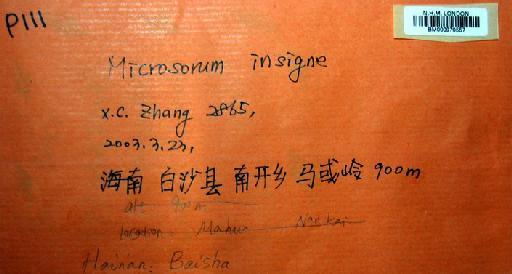 P111
N.H.M. LONDON
Microsorum insigne
X.C. Zhang 2865,
2003.3.23,
海南 白沙县 南开乡 马或岭 900m
alt 900m
location: Nankai
Hainan: Baisha